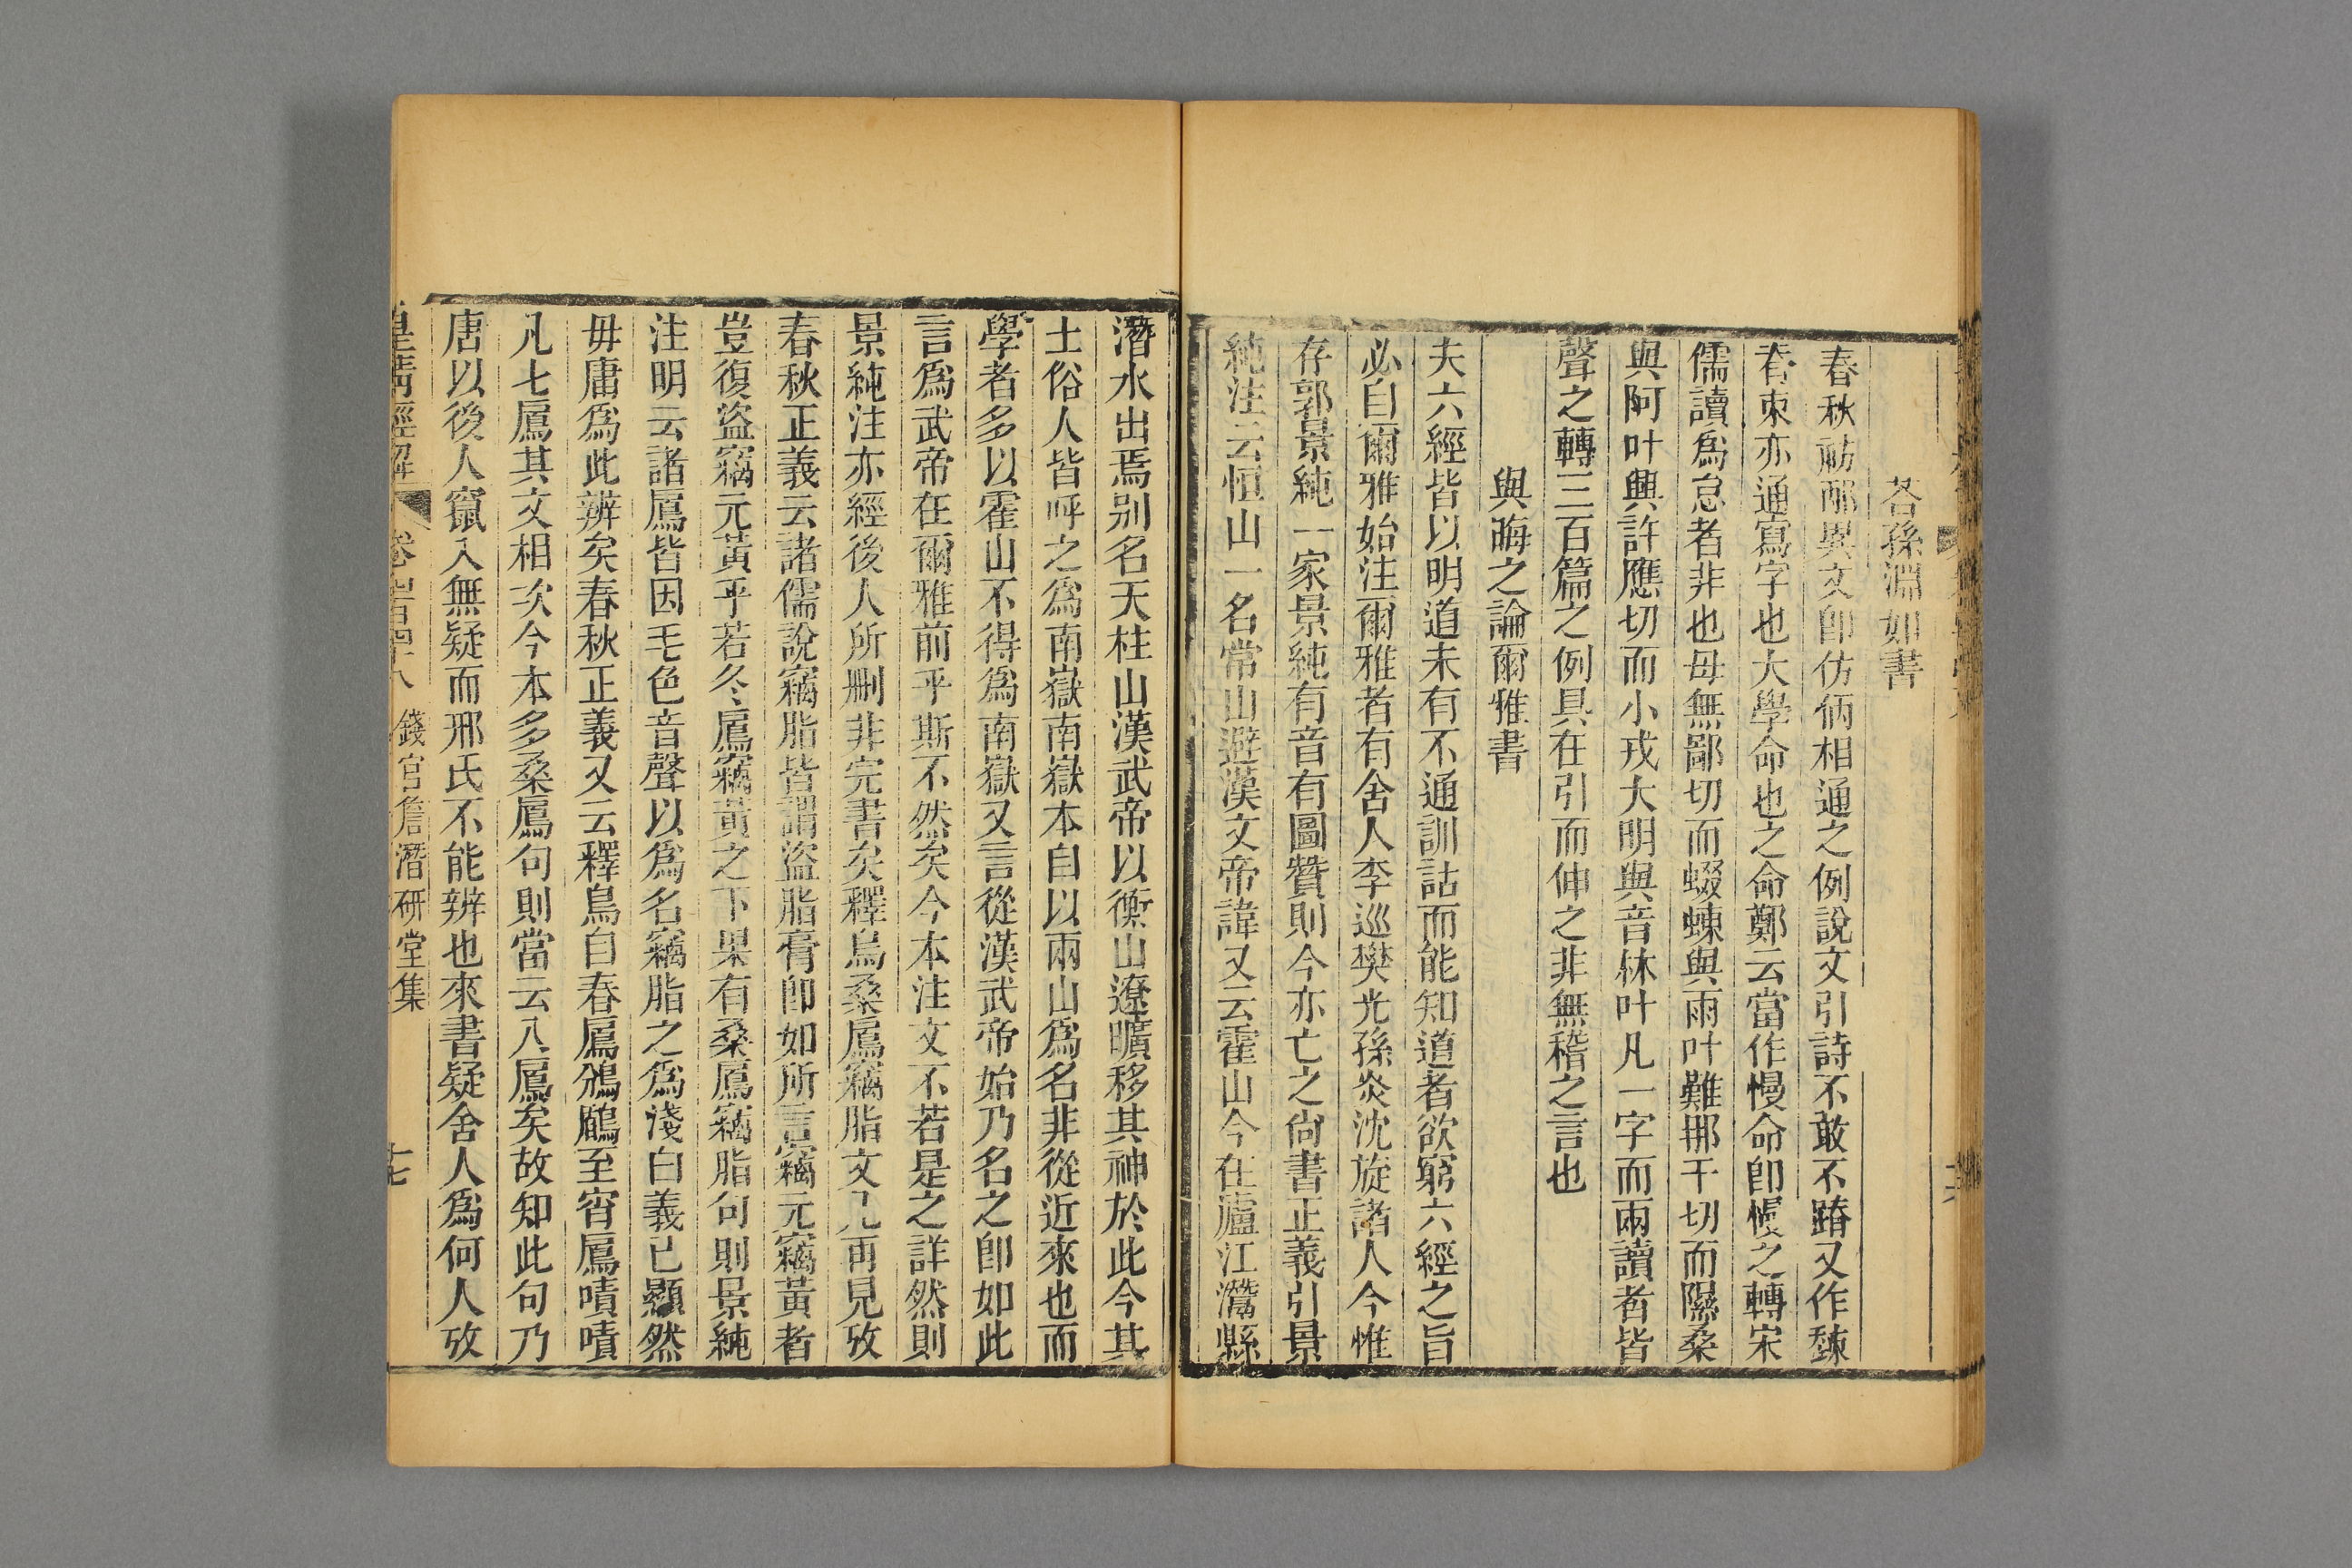 荅孫淵如書
春秋祊邴異文卽仿㑂相通之例說文引詩不敢不蹐又作䟏
脊朿亦通寫字也大學命也之命鄭云當作慢命卽慢之轉宋
儒讀爲怠者非也母無鄙切而蝃蝀與雨叶難那干切而隰桑
與阿叶興許應切而小戎大明與音林叶凡一字而兩讀者皆
聲之轉三百篇之例具在引而伸之非無稽之言也
與晦之論爾雅書
夫六經皆以明道未有不通訓詁而能知道者欲窮六經之旨
必自爾雅始注爾雅者有舍人李巡樊光孫炎沈旋諸人今惟
存郭景純一家景純有音有圖贊則今亦亡之尙書正義引景
純注云恒山一名常山避漢文帝諱又云霍山今在廬江灊縣
潛水出焉别名天柱山漢武帝以衡山遼曠移其神於此今其
土俗人皆呼之爲南嶽南嶽本自以兩山爲名非從近來也而
學者多以霍山不得爲南嶽又言從漢武帝始乃名之卽如此
言爲武帝在爾雅前乎斯不然矣今本注文不若是之詳然則
景純注亦經後人所删非完書矣釋鳥桑鳸竊脂文凡再見攷
春秋正義云諸儒說竊脂皆謂盜脂膏卽如所言竊元竊黃者
豈復盜竊元黃乎若冬鳸竊黃之下果有桑鳸竊脂句則景純
注明云諸鳸皆因毛色音聲以爲名竊脂之爲淺白義已顯然
毋庸爲此辨矣春秋正義又云釋鳥自春鳸鳻鶞至宵鳸嘖嘖
凡七鳸其文相次今本多桑鳸句則當云八鳸矣故知此句乃
唐以後人竄入無疑而邢氏不能辨也來書疑舍人爲何人攷
皇淸經解 卷四百四十八 錢宮詹潛研堂集 十七